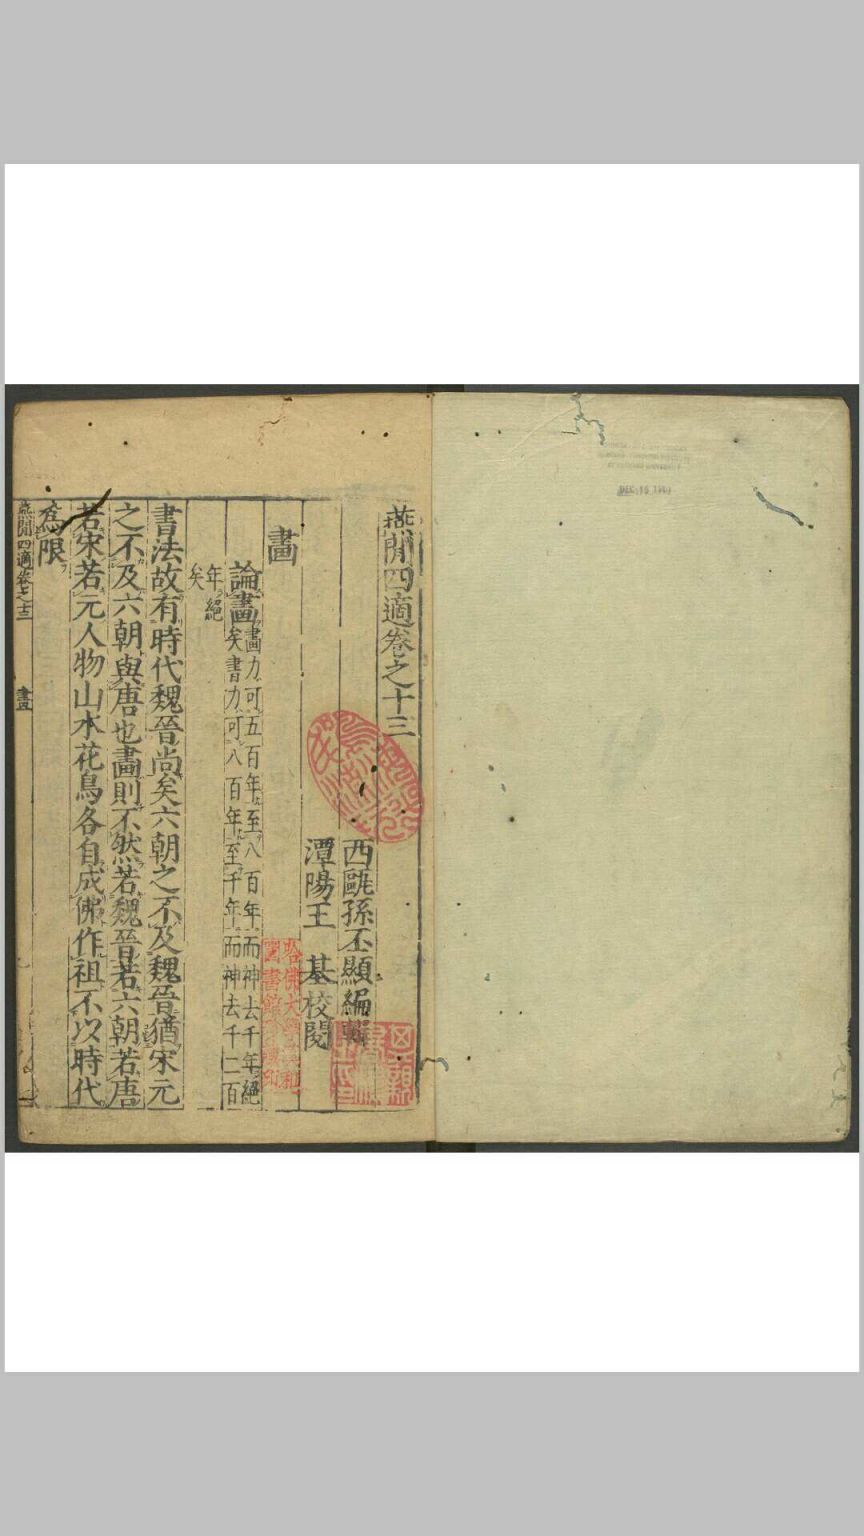 燕閒四適卷之十三
西甌孫丕顯編輯
潭陽王　基校閱
畫
論畫
畫力可五百年至八百年而神去千年絕
矣書力可八百年至千年而神去千二百
年絕
矣
書法故有時代魏晉尚矣六朝之不及魏晉猶宋元
之不及六朝與唐也畫則不然若魏晉若六朝若唐
若宋若元人物山水花鳥各自成佛作祖不以時代
為限
燕閒四適卷之十三　畫
哈佛大學漢和
圖書館珍藏印